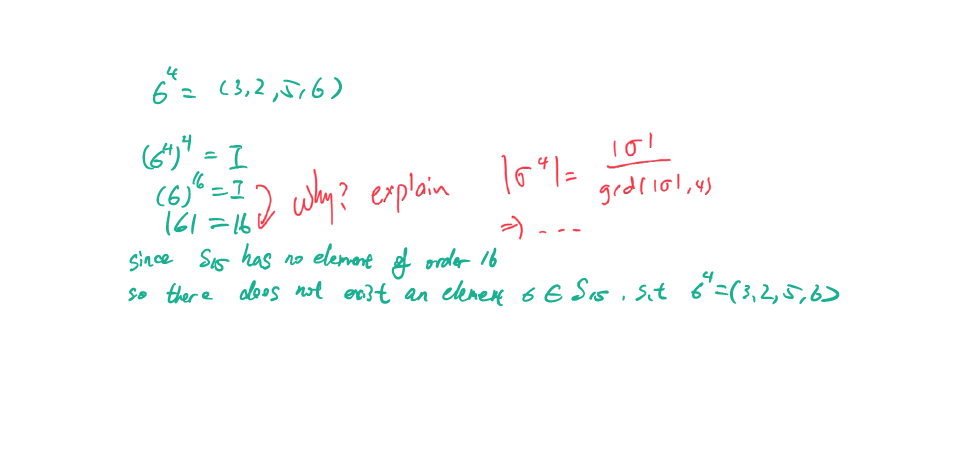 σ⁴ = (3,2,5,6)
(σ⁴)⁴ = I
(σ)¹⁶ = I
|σ| = 16
why? explain
|σ⁴| = |σ| / gcd(|σ|,4)
⇒) ----
since S₁₅ has no element of order 16
so there does not exist an element σ ∈ S₁₅ , s.t σ⁴=(3,2,5,6)